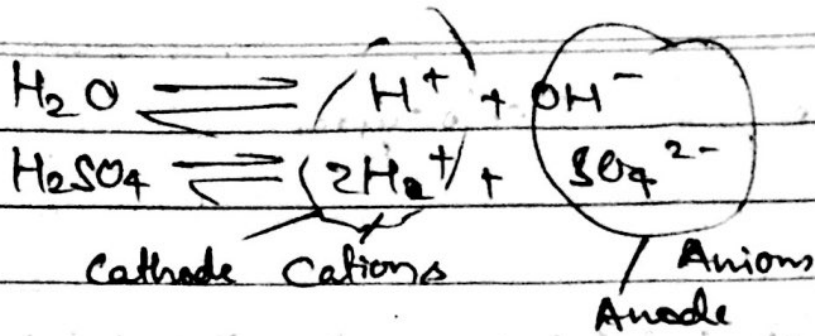 H₂O ⇌ (H⁺) + OH⁻
H₂SO₄ ⇌ (2H₂⁺) + SO₄²⁻
Cathode Cations Anions
Anode